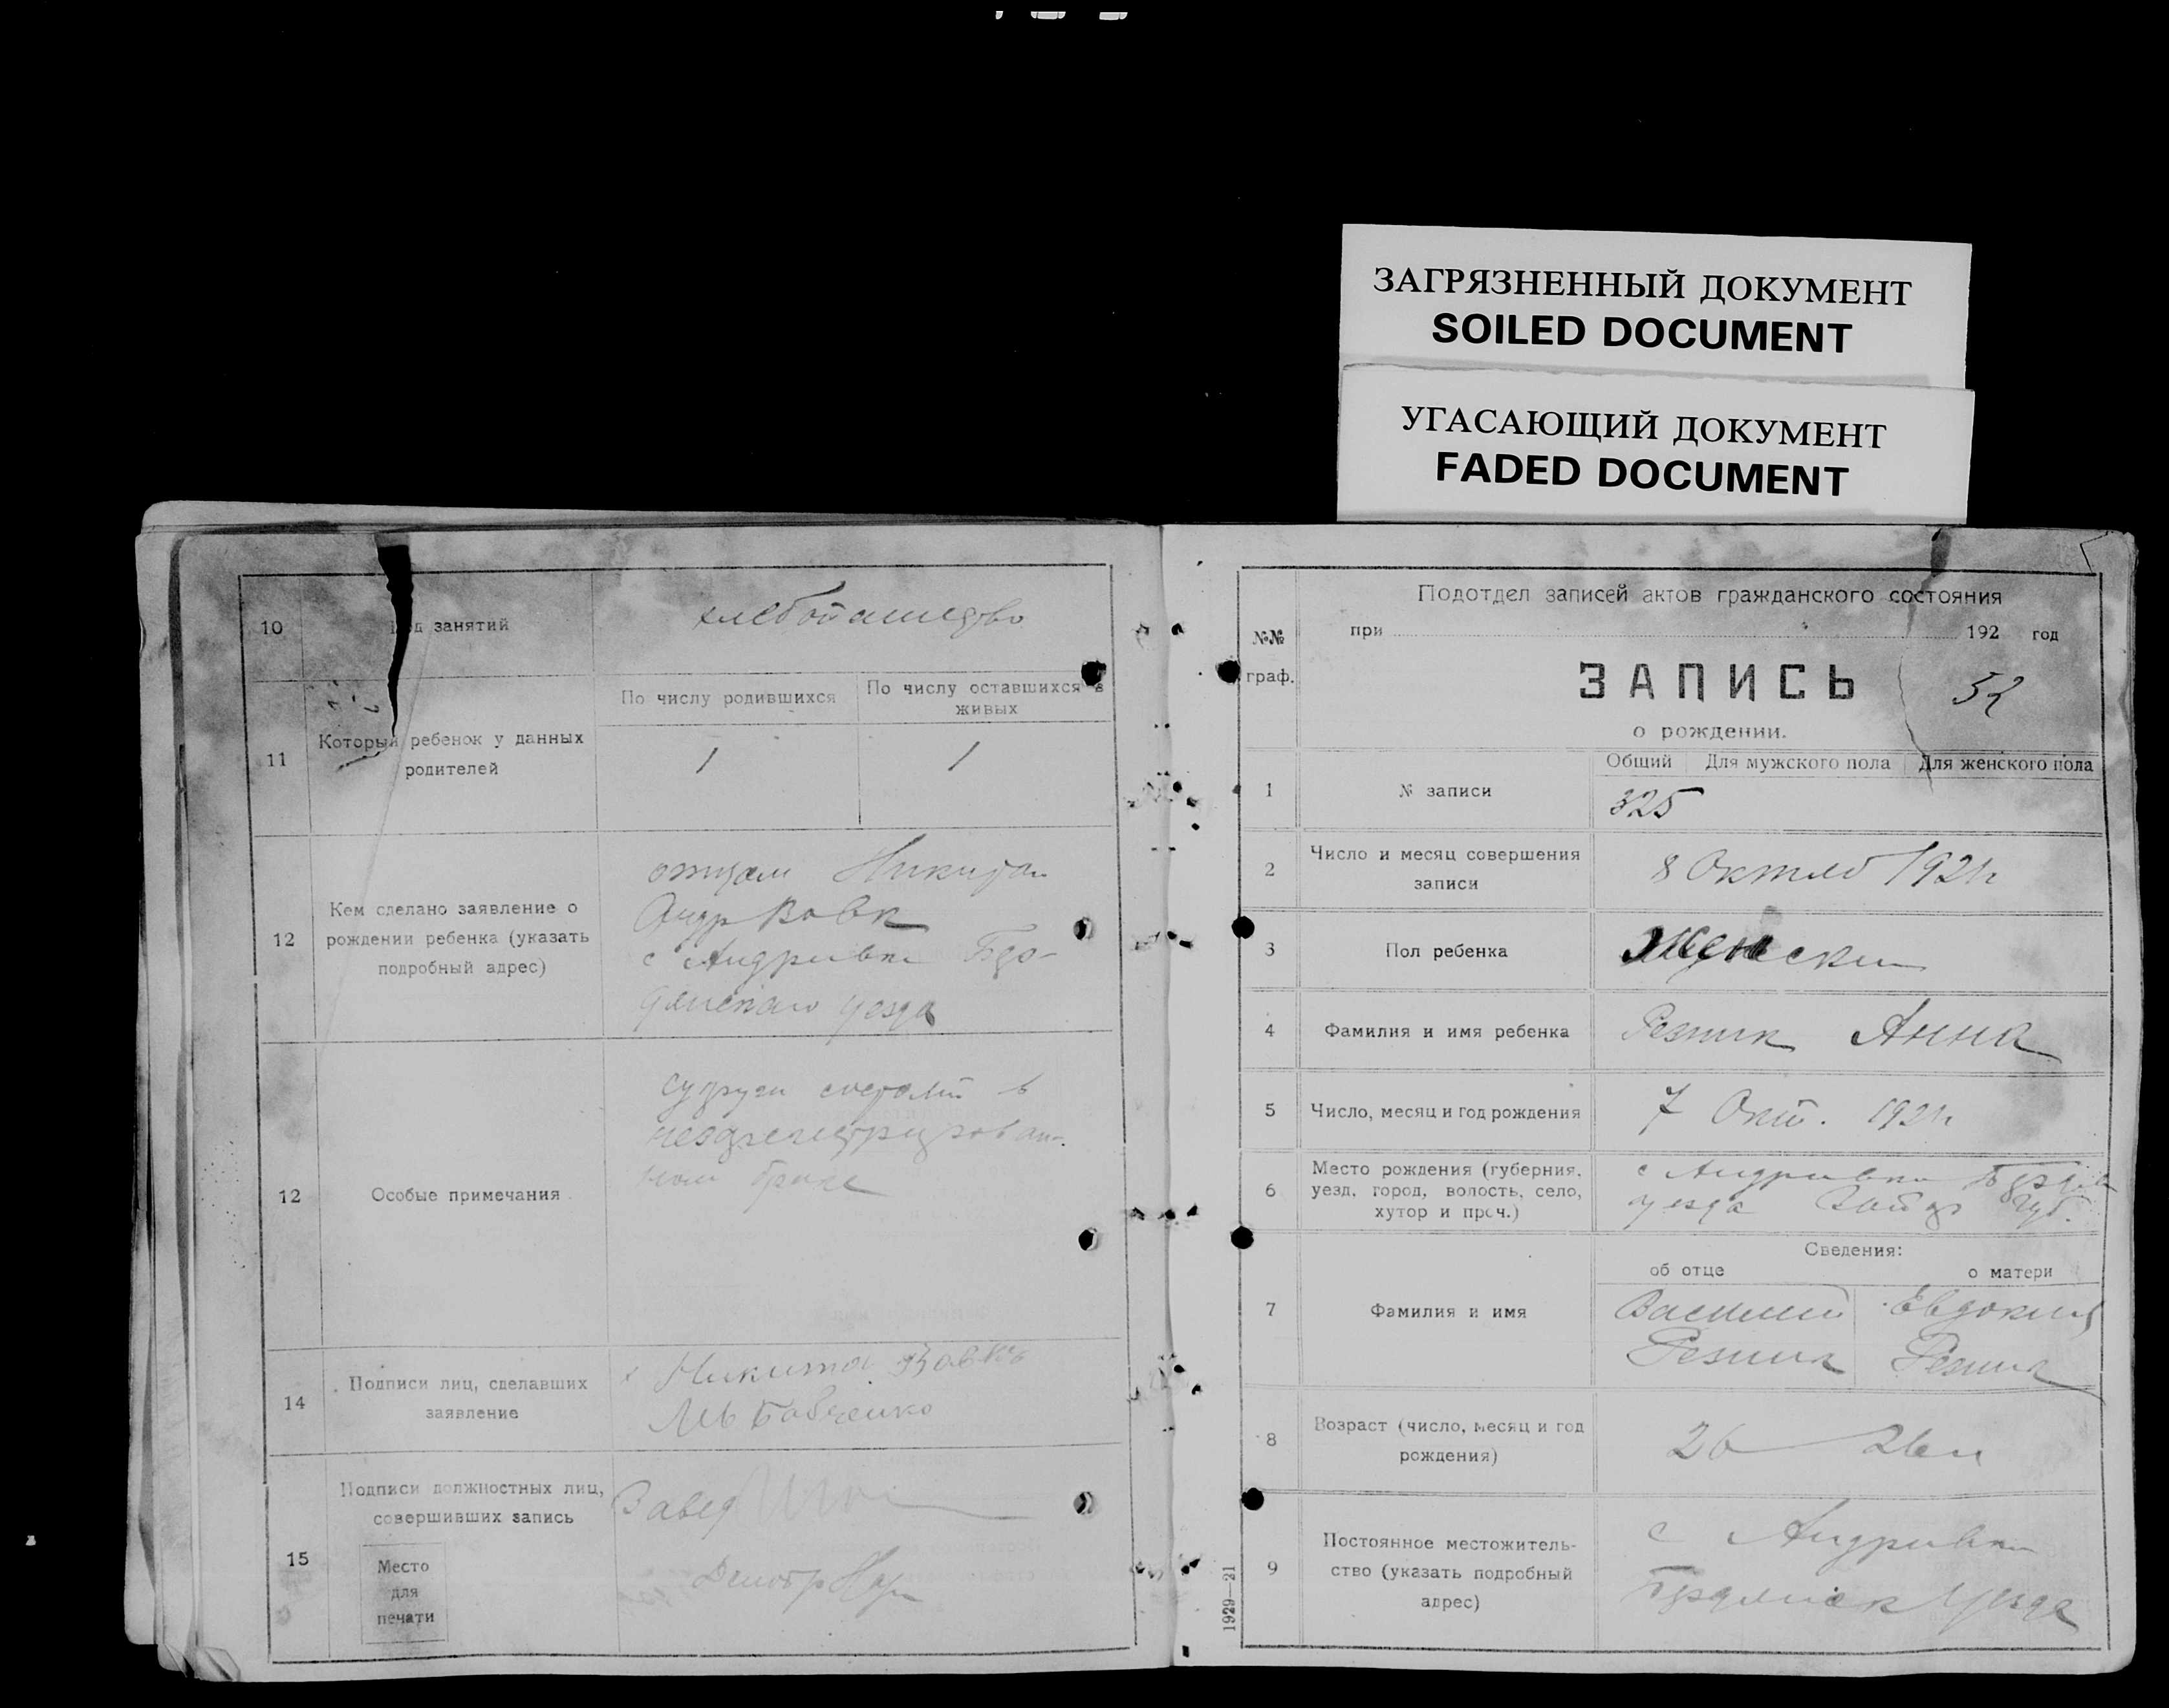 ЗАГРЯЗНЕННЫЙ ДОКУМЕНТ
SOILED DOCUMENT
УГАСАЮЩИЙ ДОКУМЕНТ
FADED DOCUMENT
10
занятий
хлебопашество
11
Который ребенок у данных
родителей
По числу родившихся
По числу оставшихся в
живых
1
1
12
Кем сделано заявление о
рождении ребенка (указать
подробный адрес)
Никита
Андр Вовк
с Андривки
уезда
12
Особые примечания
супруги в
браке
14
Подписи лиц, сделавших
заявление
Никита Вовкъ
15
Подписи должностных лиц,
совершивших запись
Завед
Место
для
печати
№№
граф.
Подотдел записей актов гражданского состояния
при 192 год
ЗАПИСЬ
52
о рождении.
1
№ записи
Общий
Для мужского пола
Для женского пола
325
2
Число и месяц совершения
записи
8 Октяб 192
3
Пол ребенка
Женски
4
Фамилия и имя ребенка
Резник Анна
5
Число, месяц и год рождения
7 Окт. 192
6
Место рождения (губерния,
уезд, город, волость, село,
хутор и проч.)
с Андривки
уезда Губ.
Сведения:
об отце
о матери
7
Фамилия и имя
Василий
Резник
Евдокия
Резник
8
Возраст (число, месяц и год
рождения)
26
9
Постоянное местожитель-
ство (указать подробный
адрес)
с Андривки
Бердянск Уезда
1929—21